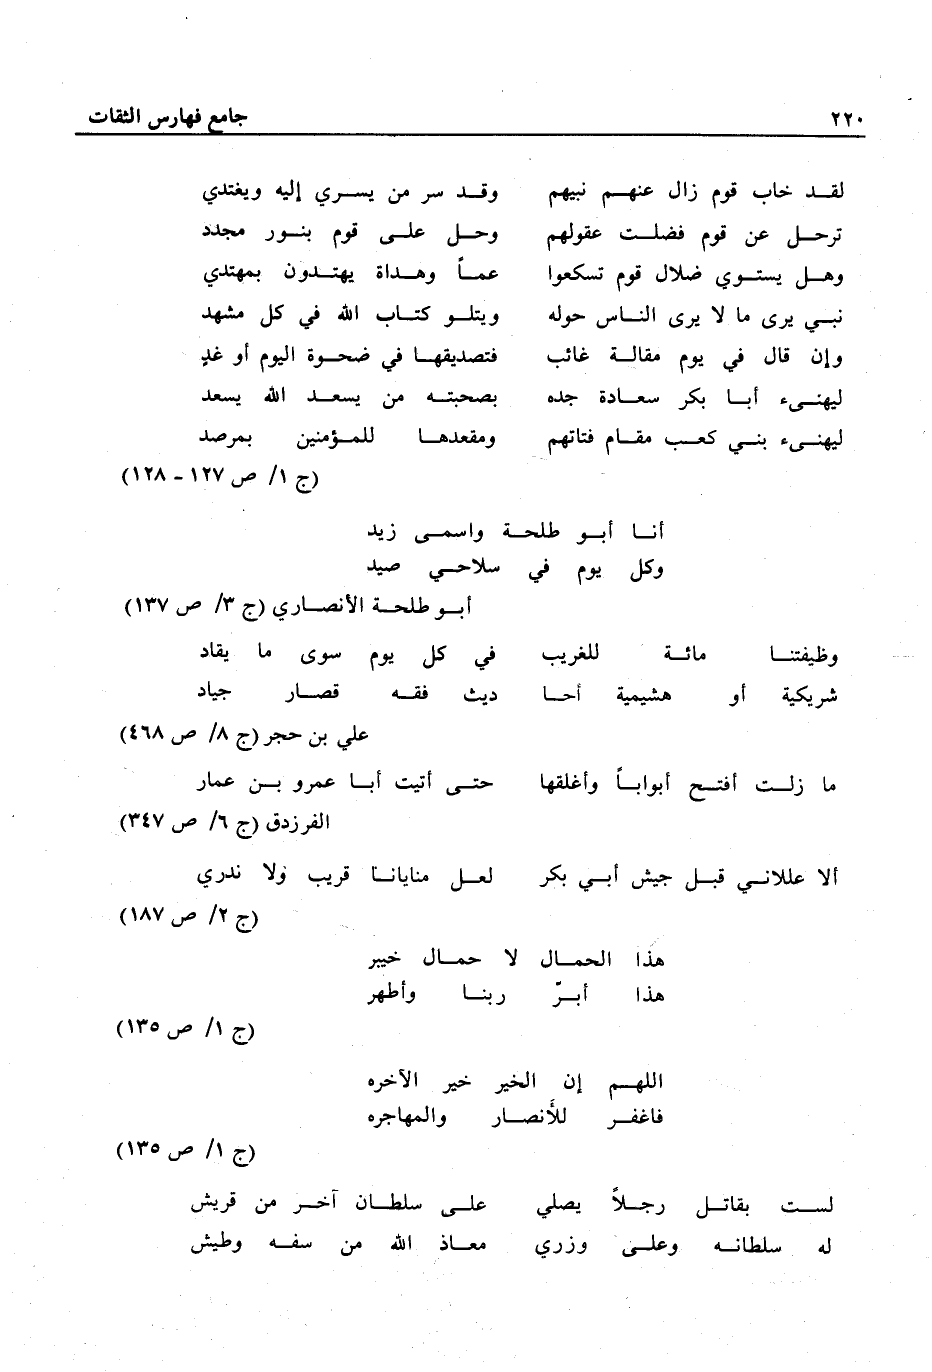 ٢٢٠ جامع فهارس الثقات
لقد خاب قوم زال عنهم نبيهم وقد سر من يسري إليه ويغتدي
ترحل عن قوم فضلت عقولهم وحل على قوم بنور مجدد
وهل يستوي ضلال قوم تسكعوا عمأ وهداة يهتدون بمهتدي
نبي يرى ما لا يرى الناس حوله ويتلو كتاب الله في كل مشهد
وإن قال في يوم مقالة غائب فتصديقها في ضحوة اليوم أو غدٍ
ليهنىء أبا بكر سعادة جده بصحبته من يسعد الله يسعد
ليهنىء بني كعب مقام فتاتهم ومقعدها للمؤمنين بمرصد
(ج ١/ ص ١٢٧ - ١٢٨)
أنا أبو طلحة واسمى زيد
وكل يوم في سلاحي صيد
أبو طلحة الأنصاري (ج ٣/ ص ١٣٧)
وظيفتنا مائة للغريب في كل يوم سوى ما يقاد
شريكية أو هشيمية أحا ديث فقه قصار جياد
علي بن حجر (ج ٨/ ص ٤٦٨)
ما زلت أفتح أبواباً وأغلقها حتى أتيت أبا عمرو بن عمار
الفرزدق (ج ٦/ ص ٣٤٧)
ألا عللاني قبل جيش أبي بكر لعل منايانا قريب ولا ندري
(ج ٢/ ص ١٨٧)
هذا الحمال لا حمال خيبر
هذا أبرّ ربنا وأطهر
(ج ١/ ص ١٣٥)
اللهم إن الخير خير الآخره
فاغفر للأنصار والمهاجره
(ج ١/ ص ١٣٥)
لست بقاتل رجلاً يصلي على سلطان آخر من قريش
له سلطانه وعلى وزري معاذ الله من سفه وطيش